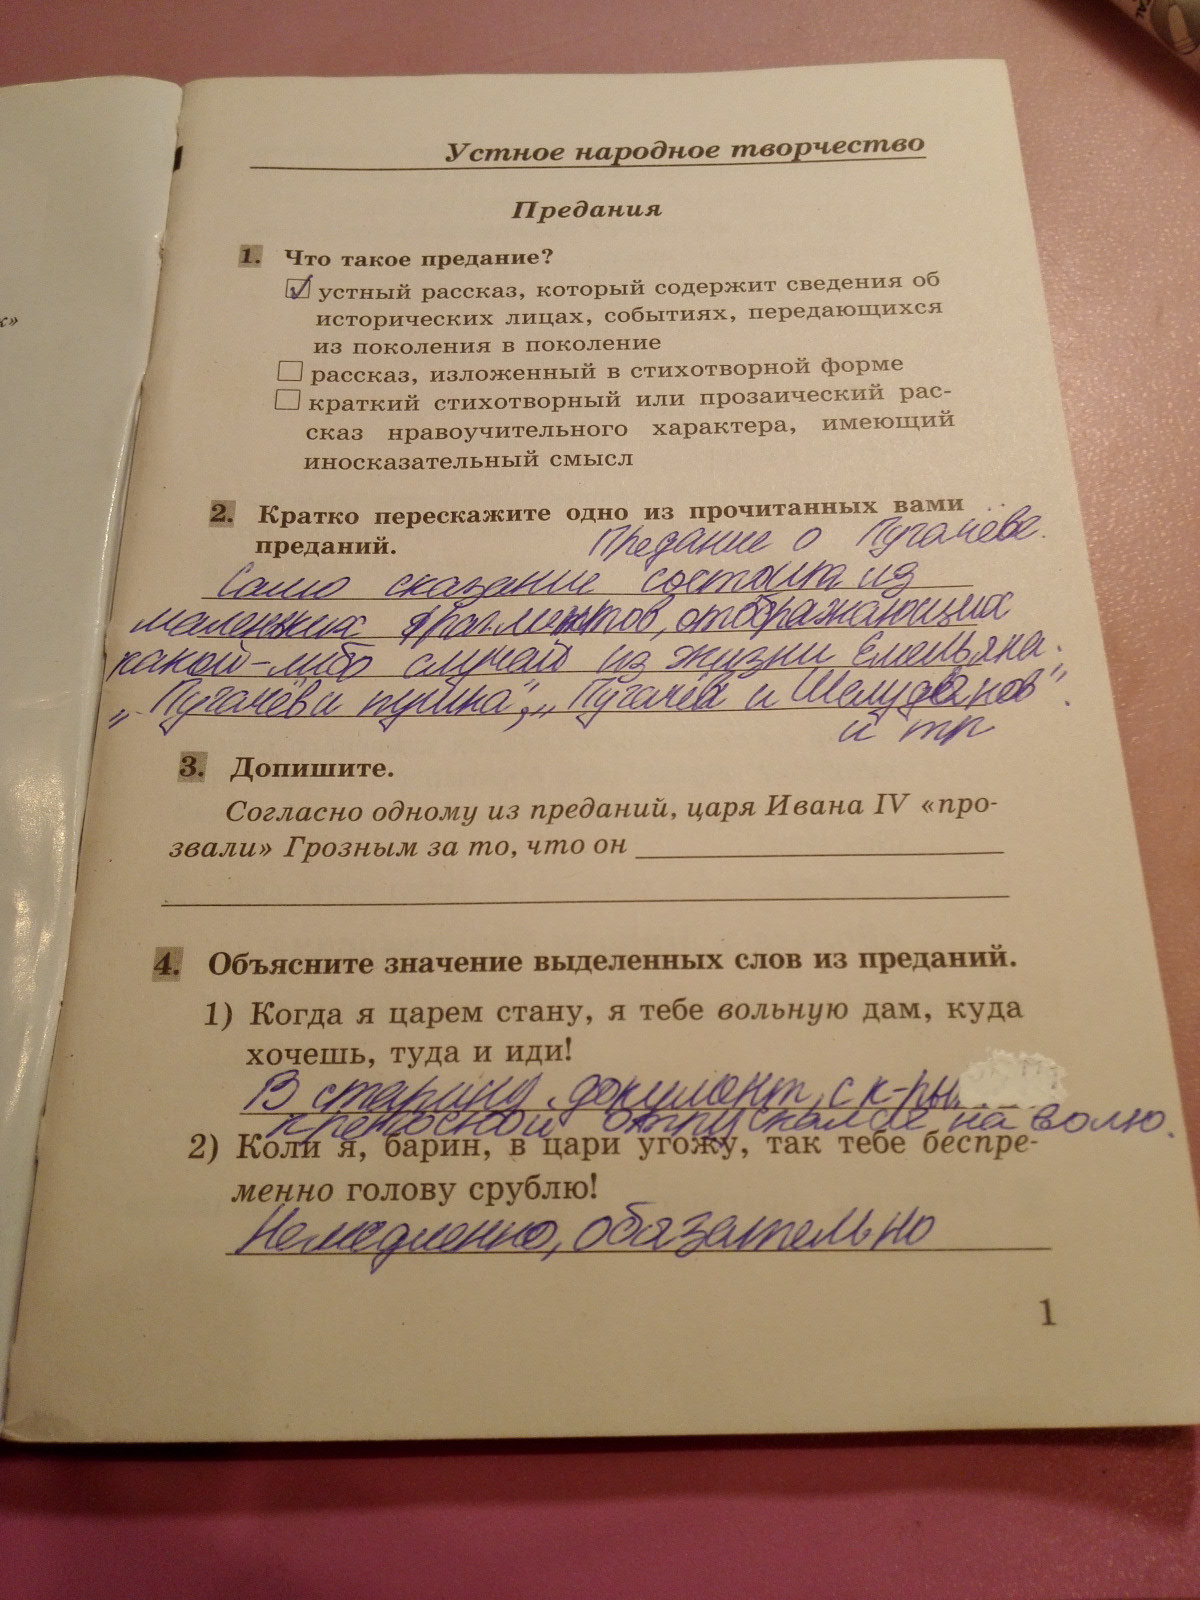 Устное народное творчество
Предания
1. Что такое предание?
устный рассказ, который содержит сведения об
исторических лицах, событиях, передающихся
из поколения в поколение
рассказ, изложенный в стихотворной форме
краткий стихотворный или прозаический рас-
сказ нравоучительного характера, имеющий
иносказательный смысл
2. Кратко перескажите одно из прочитанных вами
преданий. Предание о Пугачёве.
Само сказание состоит из
маленьких фрагментов, отображающих
какой-либо случай из жизни Емельяна.
„Пугачёв и пушка", „Пугачёв и Шелудяков".
и тр
3. Допишите.
Согласно одному из преданий, царя Ивана IV «про-
звали» Грозным за то, что он
4. Объясните значение выделенных слов из преданий.
1) Когда я царем стану, я тебе вольную дам, куда
хочешь, туда и иди!
В старину документ, с к-рым
крепостной отпускался на волю.
2) Коли я, барин, в цари угожу, так тебе беспре-
менно голову срублю!
Немедленно, обязательно
1
к»